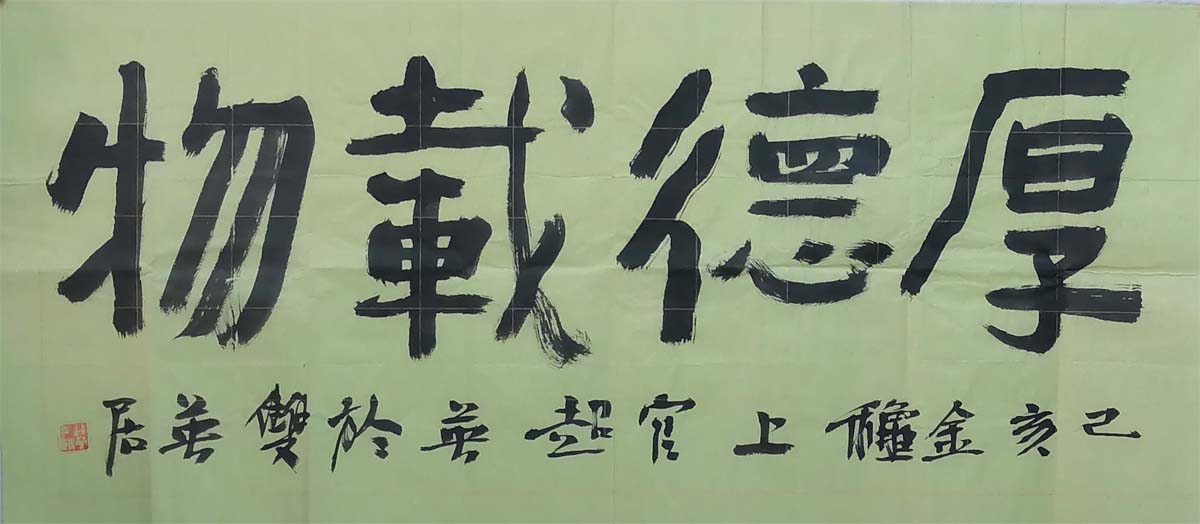 厚德載物
己亥金秋上官超英於雙英居